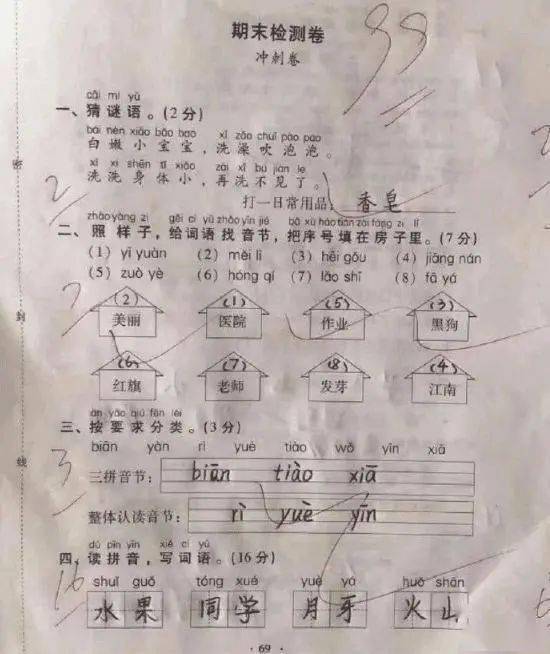 期末检测卷
冲刺卷
98
cāi mí yǔ
一、猜谜语。(2分)
bái nèn xiǎo bǎo bao xǐ zǎo chuī pào pao
白嫩小宝宝,洗澡吹泡泡。
xǐ xi shēn tǐ xiǎo zài xǐ bú jiàn le
洗洗身体小,再洗不见了。
打一日常用品: 香皂
2
zhào yàng zi gěi cí yǔ zhǎo yīn jié bǎ xù hào tián zài fáng zi lǐ
二、照样子,给词语找音节,把序号填在房子里。(7分)
(1) yī yuàn (2) měi lì (3) hēi gǒu (4) jiāng nán
(5) zuò yè (6) hóng qí (7) lǎo shī (8) fā yá
7
(2) (1) (5) (3)
美丽 医院 作业 黑狗
(6) (7) (8) (4)
红旗 老师 发芽 江南
àn yāo qiú fēn lèi
三、按要求分类。(3分)
biān yàn rì yuè tiào wǒ yīn xiā
3
三拼音节: biān tiào xiā
整体认读音节: rì yuè yīn
dú pīn yīn xiě cí yǔ
四、读拼音,写词语。(16分)
16
shuǐ guǒ tóng xué yuè yá huǒ shān
水果 同学 月牙 火山
· 69 ·
密
封
线